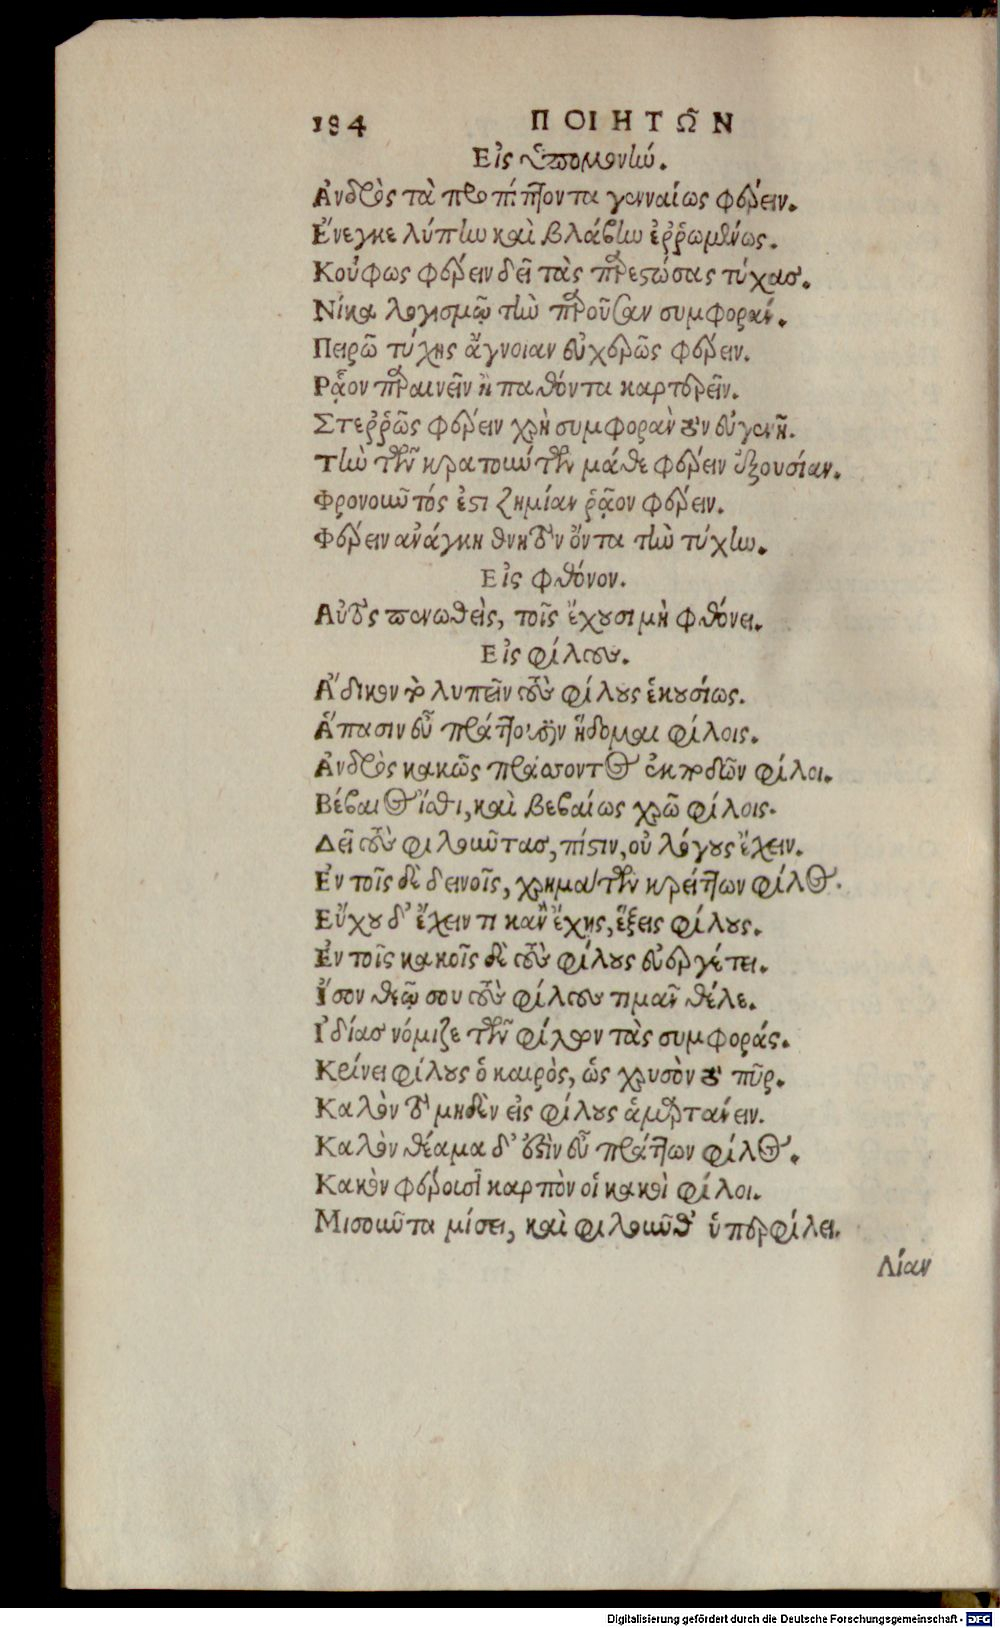 184 ΠΟΙΗΤΩ͂Ν
Εἰς ὑπομονίω.
Ἀνδρὸς τὰ προσπίπτοντα γενναίως φέρειν.
Ἔνεγκε λύπην καὶ βλάβην ἐῤῥωμένως.
Κούφως φέρειν δεῖ τὰς παρεστώσας τύχας.
Νίκα λογισμῷ τὴν παροῦσαν συμφοράν.
Πειρῶ τύχης ἄγνοιαν εὐχερῶς φέρειν.
Ρᾷον παραινεῖν ἢ παθόντα καρτερεῖν.
Στεῤῥῶς φέρειν χρὴ συμφορὰν τὸν εὐγενῆ.
Τὴν τῶν κρατούντων μάθε φέρειν ἐξουσίαν.
Φρονοῦντός ἐστι ζημίαν ῥᾷον φέρειν.
Φέρειν ἀνάγκη θνητὸν ὄντα τὴν τύχην.
Εἰς φθόνον.
Αὐτὸς πενωθεὶς, τοῖς ἔχουσι μὴ φθόνει.
Εἰς φίλους.
Ἄδικον τὸ λυπεῖν τοὺς φίλους ἑκουσίως.
Ἅπασιν εὖ πράττουσιν ἥδομαι φίλοις.
Ἀνδρὸς κακῶς πράσσοντος ἐκποδῶν φίλοι.
Βέβαιος ἴσθι, καὶ βεβαίως χρῶ φίλοις.
Δεῖ τοὺς φιλοῦντας, πίστιν, οὐ λόγους ἔχειν.
Ἐν τοῖς δὲ δεινοῖς, χρημάτων κρείττων φίλος.
Εὔχου δ' ἔχειν τι κἂν ἔχῃς, ἕξεις φίλους.
Ἐν τοῖς κακοῖς δὲ τοὺς φίλους εὐεργέτει.
Ἴσον θεῷ σου τοὺς φίλους τιμᾶν θέλε.
Ἰδίας νόμιζε τῶν φίλων τὰς συμφοράς.
Κρίνει φίλους ὁ καιρὸς, ὡς χρυσὸν τὸ πῦρ.
Καλὸν τὸ μηδὲν εἰς φίλους ἁμαρτάνειν.
Καλὸν θέαμα δ' ἐστὶν εὖ πράττων φίλος.
Κακὸν φέρουσι καρπὸν οἱ κακοὶ φίλοι.
Μισοῦντα μίσει, καὶ φιλοῦνθ' ὑπερφίλει.
Λίαν
Digitalisierung gefördert durch die Deutsche Forschungsgemeinschaft - DFG